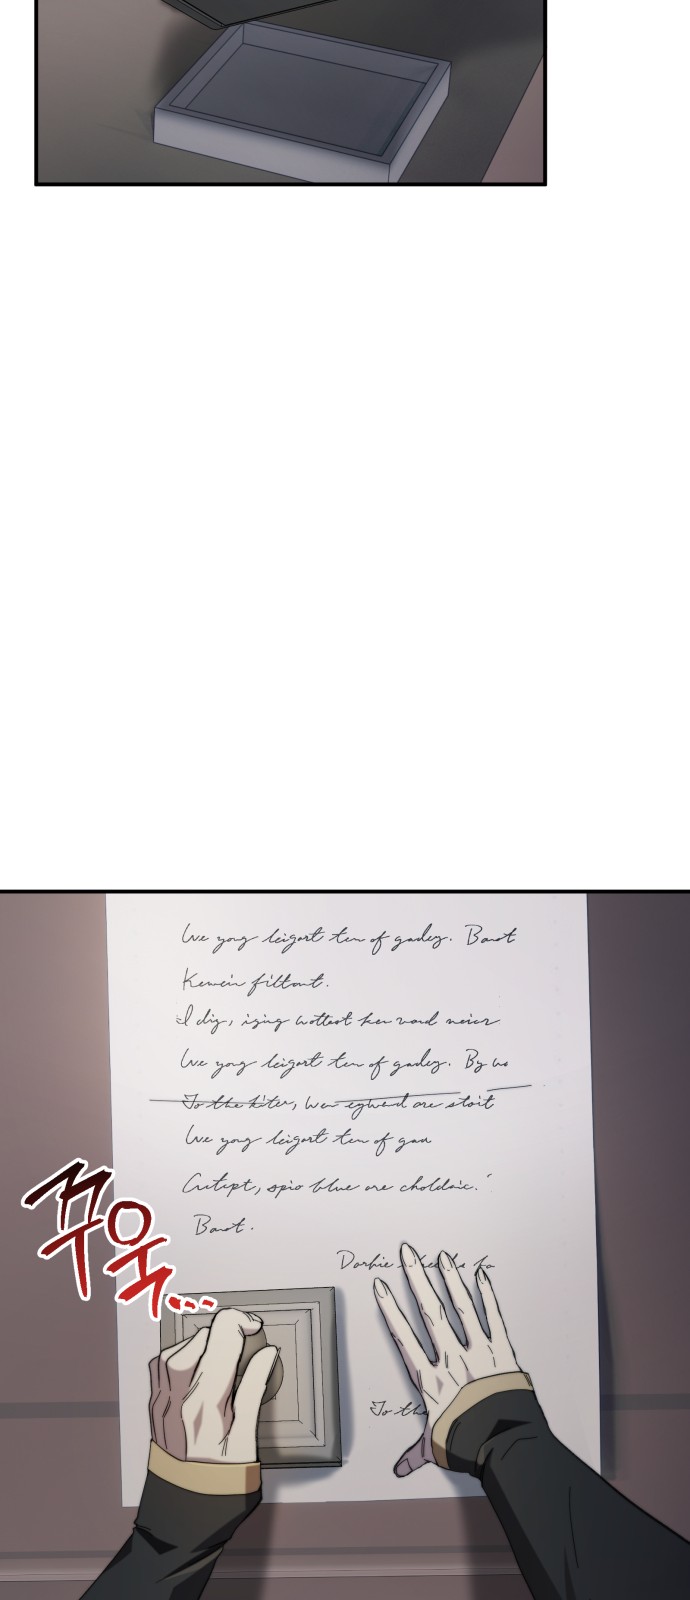 We yong leigart ten of gadey. Baot
Kemein filtont.
I diy, iging wottest ken vard neier
We yong leigart ten of gadey. By wo
To the kiter, wen egward are stoit
We yong leigart ten of gaa
spio blue are choldaic.
Baot.
꾸욱...
To the